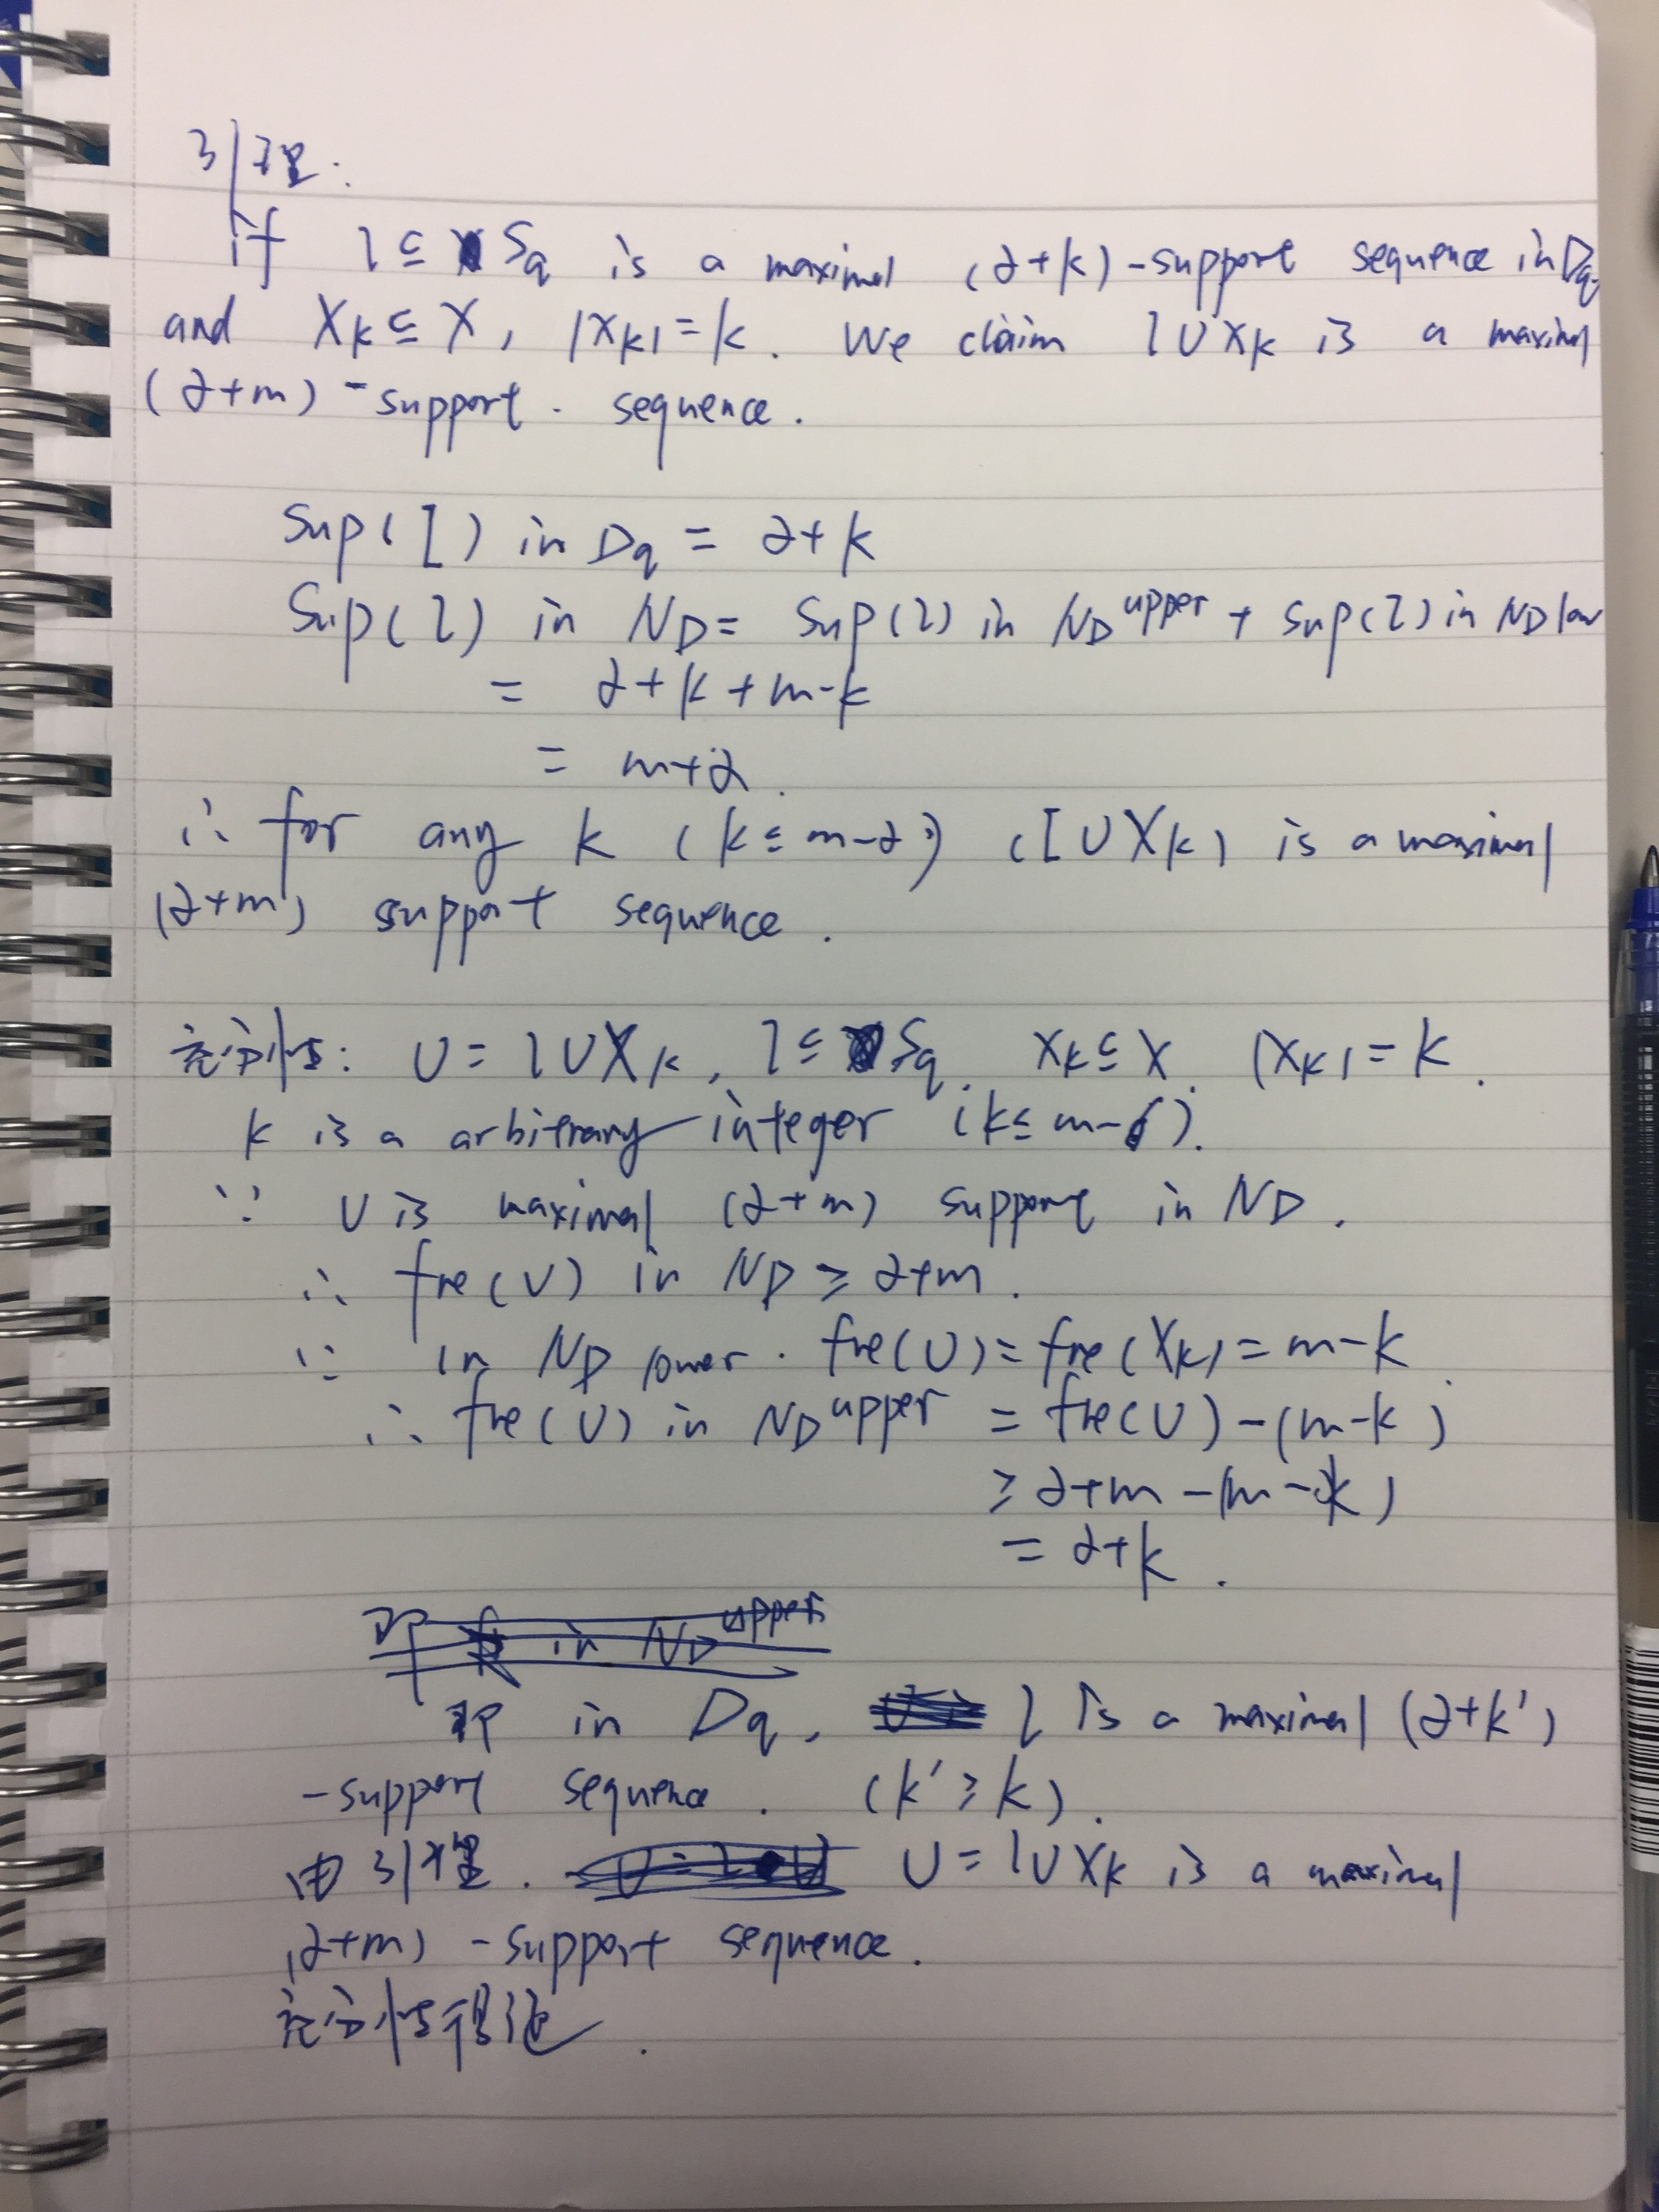 引理:
if l ⊆ Sq is a maximal (∂+k)-support sequence in Dq
and Xk ⊆ X, |Xk| = k. We claim l∪Xk is a maximal
(∂+m)-support. sequence.
Sup(I) in Dq = ∂+k
Sup(l) in ND = Sup(l) in ND upper + Sup(l) in ND low
= ∂+k+m-k
= m+∂.
∴ for any k (k ≤ m-∂) (I∪Xk) is a maximal
(∂+m) support sequence.
充分性: U = l∪Xk, l ⊆ Sq. Xk ⊆ X. |Xk| = k.
k is a arbitrary integer (k ≤ m-6).
∵ U is maximal (∂+m) support in ND.
∴ fre(U) in ND ≥ ∂+m.
∵ in ND lower. fre(U) = fre(Xk) = m-k.
∴ fre(U) in ND upper = fre(U)-(m-k)
≥ ∂+m-(m-k)
= ∂+k.
即 in ND upper
即 in Dq, l is a maximal (∂+k')
-support sequence. (k' ≥ k).
由引理. U = l∪Xk is a maximal
(∂+m)-support sequence.
充分性得证.